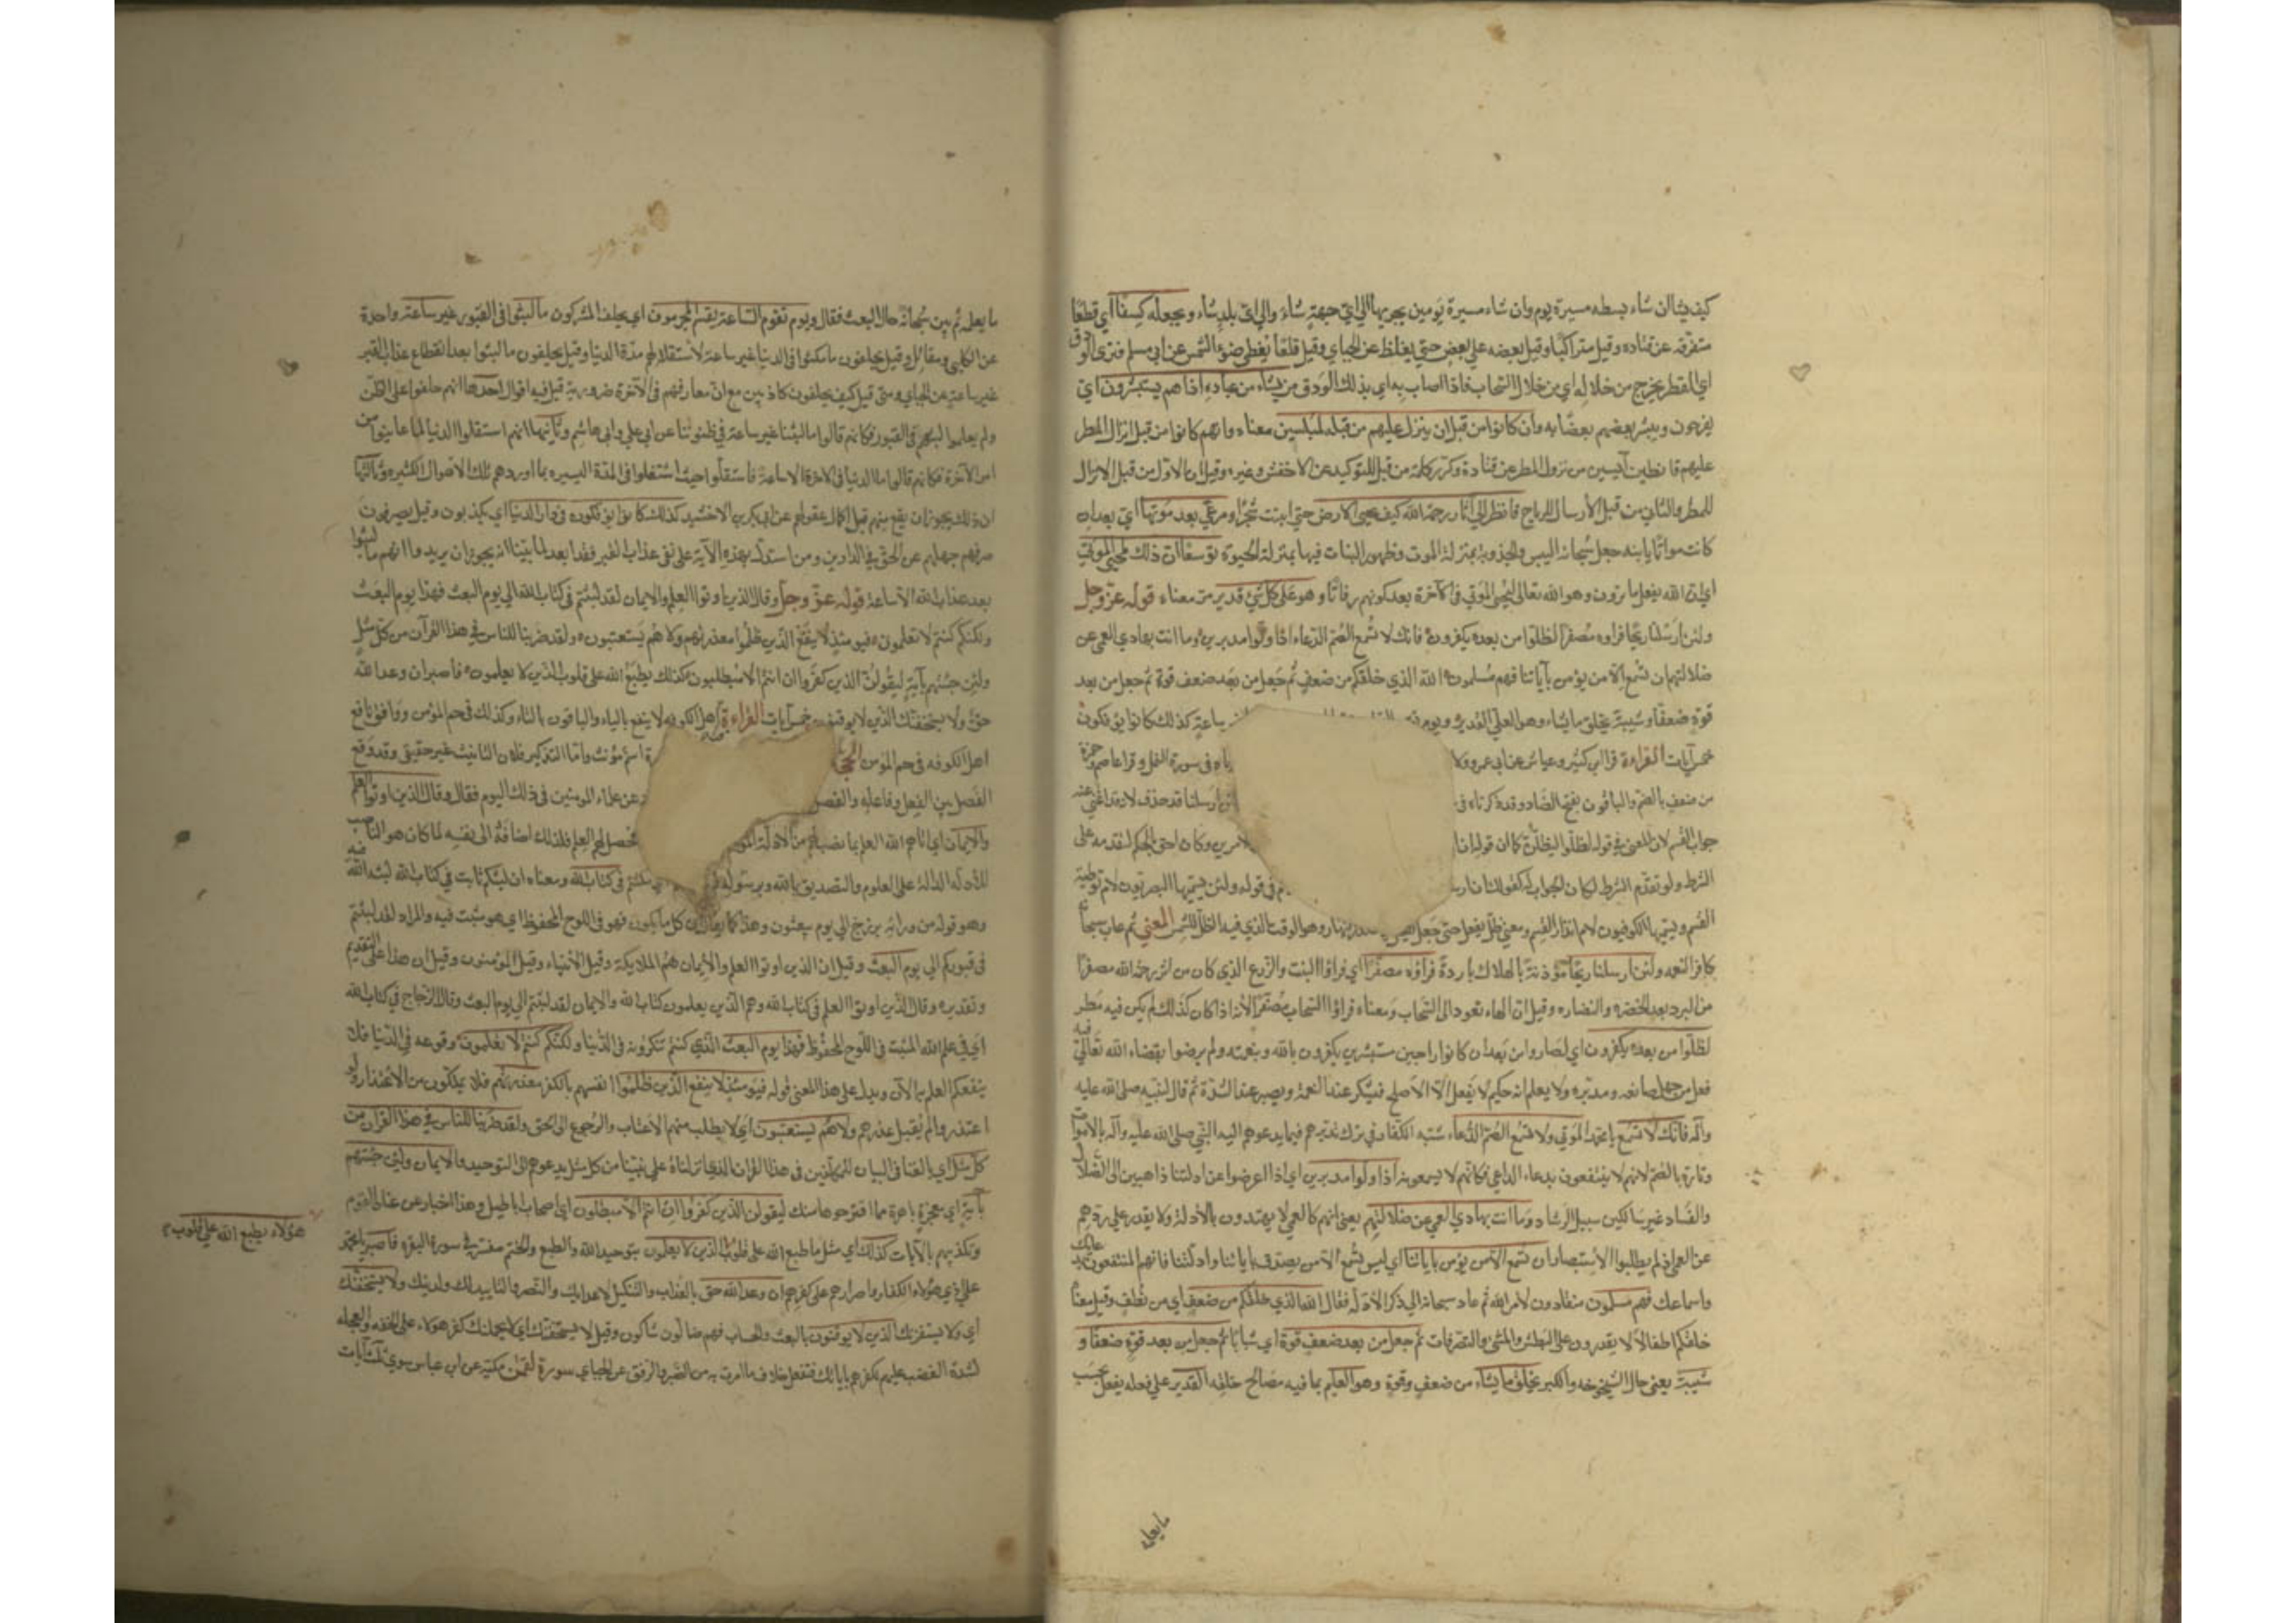 كيف يشاء ان شاء بسطه مسيرة يوم وان شاء مسيرة يومين يجريها الي اي جهة شاء والي اي بلد شاء ويجعله كسفا اي قطعا
متفرقة عن قتاده وقيل متراكبا وقيل بعضه علي بعض حتي يغلظ عن الجباي وقيل قلعا تغطي ضوء الشمس عن ابي مسلم فتري الودق
اي القطر يخرج من خلاله اي من خلال السحاب فاذا اصاب به اي بذلك الودق من يشاء من عباده اذا هم يستبشرون اي
يفرحون ويبشر بعضهم بعضا به وان كانوا من قبل ان ينزل عليهم من قبله لمبلسين معناه وانهم كانوا من قبل انزال المطر
عليهم قانطين آيسين من نزول المطر عن قتادة وكرر كلمة من قبل للتوكيد عن الاخفش وغيره وقيل ان الاول من قبل الانزال
للمطر والثاني من قبل الارسال للرياح فانظر الي آثار رحمة الله كيف يحيي الارض حتي انبتت شجرا ومرعي بعد موتها اي بعد ان
كانت مواتا يابسة جعل سبحانه اليبس والجدوبة بمنزلة الموت وظهور النبات فيها بمنزلة الحيوة توسعا ان ذلك لمحيي الموتي
اي ان الله يفعل ما ترون وهو الله تعالي ليحيي الموتي في الآخرة بعد كونهم رفاتا وهو علي كل شيء قدير مر معناه قوله عز وجل
ولئن ارسلنا ريحا فراوه مصفرا لظلوا من بعده يكفرون فانك لا تسمع الصم الدعاء اذا ولوا مدبرين وما انت بهادي العمي عن
ضلالتهم ان تسمع الا من يؤمن بآياتنا فهم مسلمون الله الذي خلقكم من ضعف ثم جعل من بعد ضعف قوة ثم جعل من بعد
قوة ضعفا وشيبة يخلق ما يشاء وهو العليم القدير ويوم ساعة كذلك كانوا يؤفكون
خمس آيات القراءة قرا ابن كثير وعياش عن ابي عمرو ولا في سورة النمل وقرا عاصم وحمزة
من ضعف بالضم والباقون بفتح الضاد وقد ذكرناه في ارسلنا قد حذف لانه قد اغني عنه
جواب القسم لان المعني في قوله لظلوا ليظلن كما ان قولك ان الامرين وكان احق بالحكم لتقدمه علي
الشرط ولو تقدم الشرط لكان الجواب له كقولك ان ارسلنا في قوله ولئن يسميها البصريون لام توطية
القسم ويسميها الكوفيون لام انذار القسم ومعني ظل يفعل حتي جعل نهار وهو الوقت الذي فيه الظل للشمس المعني ثم عاب سبحانه
كافر النعمة ولئن ارسلنا ريحا مؤذنة بالهلاك باردة فراوه مصفرا اي فراؤا النبت والزرع الذي كان من اثر رحمة الله مصفرا
من البرد بعد الخضرة والنضارة وقيل ان الهاء تعود الي السحاب ومعناه فراؤا السحاب مصفرا لانه اذا كان كذلك لم يكن فيه مطر
لظلوا من بعده يكفرون اي لصاروا من بعد ان كانوا راجين مستبشرين يكفرون بالله وبنعمته ولم يرضوا بقضاء الله تعالي فيه
فعل من جهل صانعه ومدبره ولا يعلم انه حكيم لا يفعل الا الاصلح فيشكر عند النعمة ويصبر عند الشدة ثم قال لنبيه صلي الله عليه
وآله فانك لا تسمع يا محمد الموتي ولا تسمع الصم الدعاء شبه الكفار في ترك تدبرهم فيما يدعوهم اليه النبي صلي الله عليه وآله بالاموات
وتارة بالصم لانهم لا ينتفعون بدعاء الداعي فكانهم لا يسمعونه اذا ولوا مدبرين اي اذا اعرضوا عن ادلتنا ذاهبين الي الضلال
والفساد غير سالكين سبيل الرشاد وما انت بهادي العمي عن ضلالتهم يعني انهم كالعمي لا يهتدون بالادلة ولا يقدر علي ردهم
عن العمي اذ لم يطلبوا الاستبصار ان تسمع الا من يؤمن باياتنا اي ليس تسمع الا من يصدق باياتنا وادلتنا فانهم المنتفعون بدعائك
واسماعك فهم مسلمون منقادون لامر الله ثم عاد سبحانه الي ذكر الادلة فقال الله الذي خلقكم من ضعف اي من نطف وقيل معناه
خلقكم اطفالا لا يقدرون علي البطش والمشي والتصرفات ثم جعل من بعد ضعف قوة اي شبابا ثم جعل من بعد قوة ضعفا و
شيبة يعني حال الشيخوخه والكبر يخلق ما يشاء من ضعف وقوة وهو العليم بما فيه مصالح خلقه القدير علي فعله يفعل بحسب
ما يعلمه
ما يعلمه ثم بين سبحانه حال البعث فقال ويوم تقوم الساعة يقسم المجرمون اي يحلف المشركون ما لبثوا في القبور غير ساعة واحدة
عن الكلبي ومقاتل وقيل يحلفون ما مكثوا في الدنيا غير ساعة لاستقلالهم مدة الدنيا وقيل يحلفون ما لبثوا بعد انقطاع عذاب القبر
غير ساعة عن الجباي ومتي قيل كيف يحلفون كاذبين مع ان معارفهم في الآخرة ضرورية قيل فيه اقوال احدها انهم حلفوا علي الظن
ولم يعلموا لبثهم في القبور فكانهم قالوا ما لبثنا غير ساعة في ظنوننا عن ابي علي وابي هاشم وثانيها انهم استقلوا الدنيا لما عاينوا من
امر الآخرة فكانهم قالوا ما الدنيا في الاخرة الا ساعة فاستقلوا حيث اشتغلوا في المدة اليسيره بما اوردهم تلك الاهوال الكثيره وثالثها
ان ذلك يجوز ان يقع منهم قبل اكمال عقولهم عن ابي بكر بن الاخشيد كذلك كانوا يؤفكون في دار الدنيا اي يكذبون وقيل يصرفون
صرفهم جهلهم عن الحق في الدارين ومن استدل بهذه الآية علي نفي عذاب القبر فقد ابعد لما بينا انه يجوز ان يريدوا انهم ما لبثوا
بعد عذاب الله الا ساعة قوله عز وجل وقال الذين اوتوا العلم والايمان لقد لبثتم في كتاب الله الي يوم البعث فهذا يوم البعث
ولكنكم كنتم لا تعلمون فيومئذ لا ينفع الذين ظلموا معذرتهم ولا هم يستعتبون ولقد ضربنا للناس في هذا القرآن من كل مثل
ولئن جئتهم بآية ليقولن الذين كفروا ان انتم الا مبطلون كذلك يطبع الله علي قلوب الذين لا يعلمون فاصبر ان وعد الله
حق ولا يستخفنك الذين لا يوقنون خمس آيات القراءة قرا اهل الكوفه لا ينفع بالياء والباقون بالتاء وكذلك في حم المؤمن ووافق نافع
اهل الكوفه في حم المؤمن الحجة اسم مؤنث واما التذكير فلان التانيث غير حقيقي وقد وقع
الفصل بين الفعل وفاعله والفصل عن علماء المومنين في ذلك اليوم فقال وقال الذين اوتوا العلم
والايمان اي آتاهم الله العلم بما نصب لهم من الادلة الموجبة تحصل لهم العلم فلذلك اضافه الي نفسه لما كان هو الناصب
للادلة الدالة علي العلوم والتصديق بالله وبرسوله لبثتم في كتاب الله ومعناه ان لبثكم ثابت في كتاب الله لبثه الله فيه
وهو قوله من ورائهم برزخ الي يوم يبعثون وهذا كما يقال ان كل ما يكون فهو في اللوح المحفوظ اي هو مثبت فيه والمراد لقد لبثتم
في قبوركم الي يوم البعث وقيل ان الذين اوتوا العلم والايمان هم الملايكة وقيل الانبياء وقيل المؤمنون وقيل ان هذا علي التقديم
وتقديره وقال الذين اوتوا العلم في كتاب الله وهم الذين يعلمون كتاب الله والايمان لقد لبثتم الي يوم البعث وقال الزجاج في كتاب الله
اي في علم الله المثبت في اللوح المحفوظ فهذا يوم البعث الذي كنتم تنكرونه في الدنيا ولكنكم كنتم لا تعلمون وقوعه في الدنيا فلا
ينفعكم العلم به الآن ويدل علي هذا المعني قوله فيومئذ لا ينفع الذين ظلموا انفسهم بالكفر معذرتهم فلا يمكنون من الاعتذار ولو
اعتذروا لم يقبل عذرهم ولا هم يستعتبون اي لا يطلب منهم الاعتاب والرجوع الي الحق ولقد ضربنا للناس في هذا القرآن من
كل مثل اي بالغنا في البيان للمكلفين في هذا القرآن الذي انزلناه علي نبينا من كل مثل يدعوهم الي التوحيد والايمان ولئن جئتهم
بآية اي معجزة باهرة مما اقترحوها منك ليقولن الذين كفروا ان انتم الا مبطلون اي اصحاب اباطيل وهذا اخبار عن عناد القوم
وتكذيبهم بالآيات كذلك اي مثل ما طبع الله علي قلوب الذين لا يعلمون بتوحيد الله والطبع والختم مفسر في سورة البقرة فاصبر يا محمد
هؤلاء يطبع الله علي قلوب
علي اذي هؤلاء الكفار واصرارهم علي كفرهم ان وعد الله حق بالعذاب والتنكيل لاعدائك والنصر والتاييد لك ولدينك ولا يستخفنك
اي ولا يستفزنك الذين لا يوقنون بالبعث والحساب فهم ضالون شاكون وقيل لا يستخفنك اي لا يحملنك كفر هؤلاء علي الخفة والعجلة
لشدة الغضب عليهم لكفرهم باياتك فتفعل خلاف ما امرت به من الصبر والرفق عن الجباي سورة لقمن مكية عن ابن عباس سوي ثلث آيات